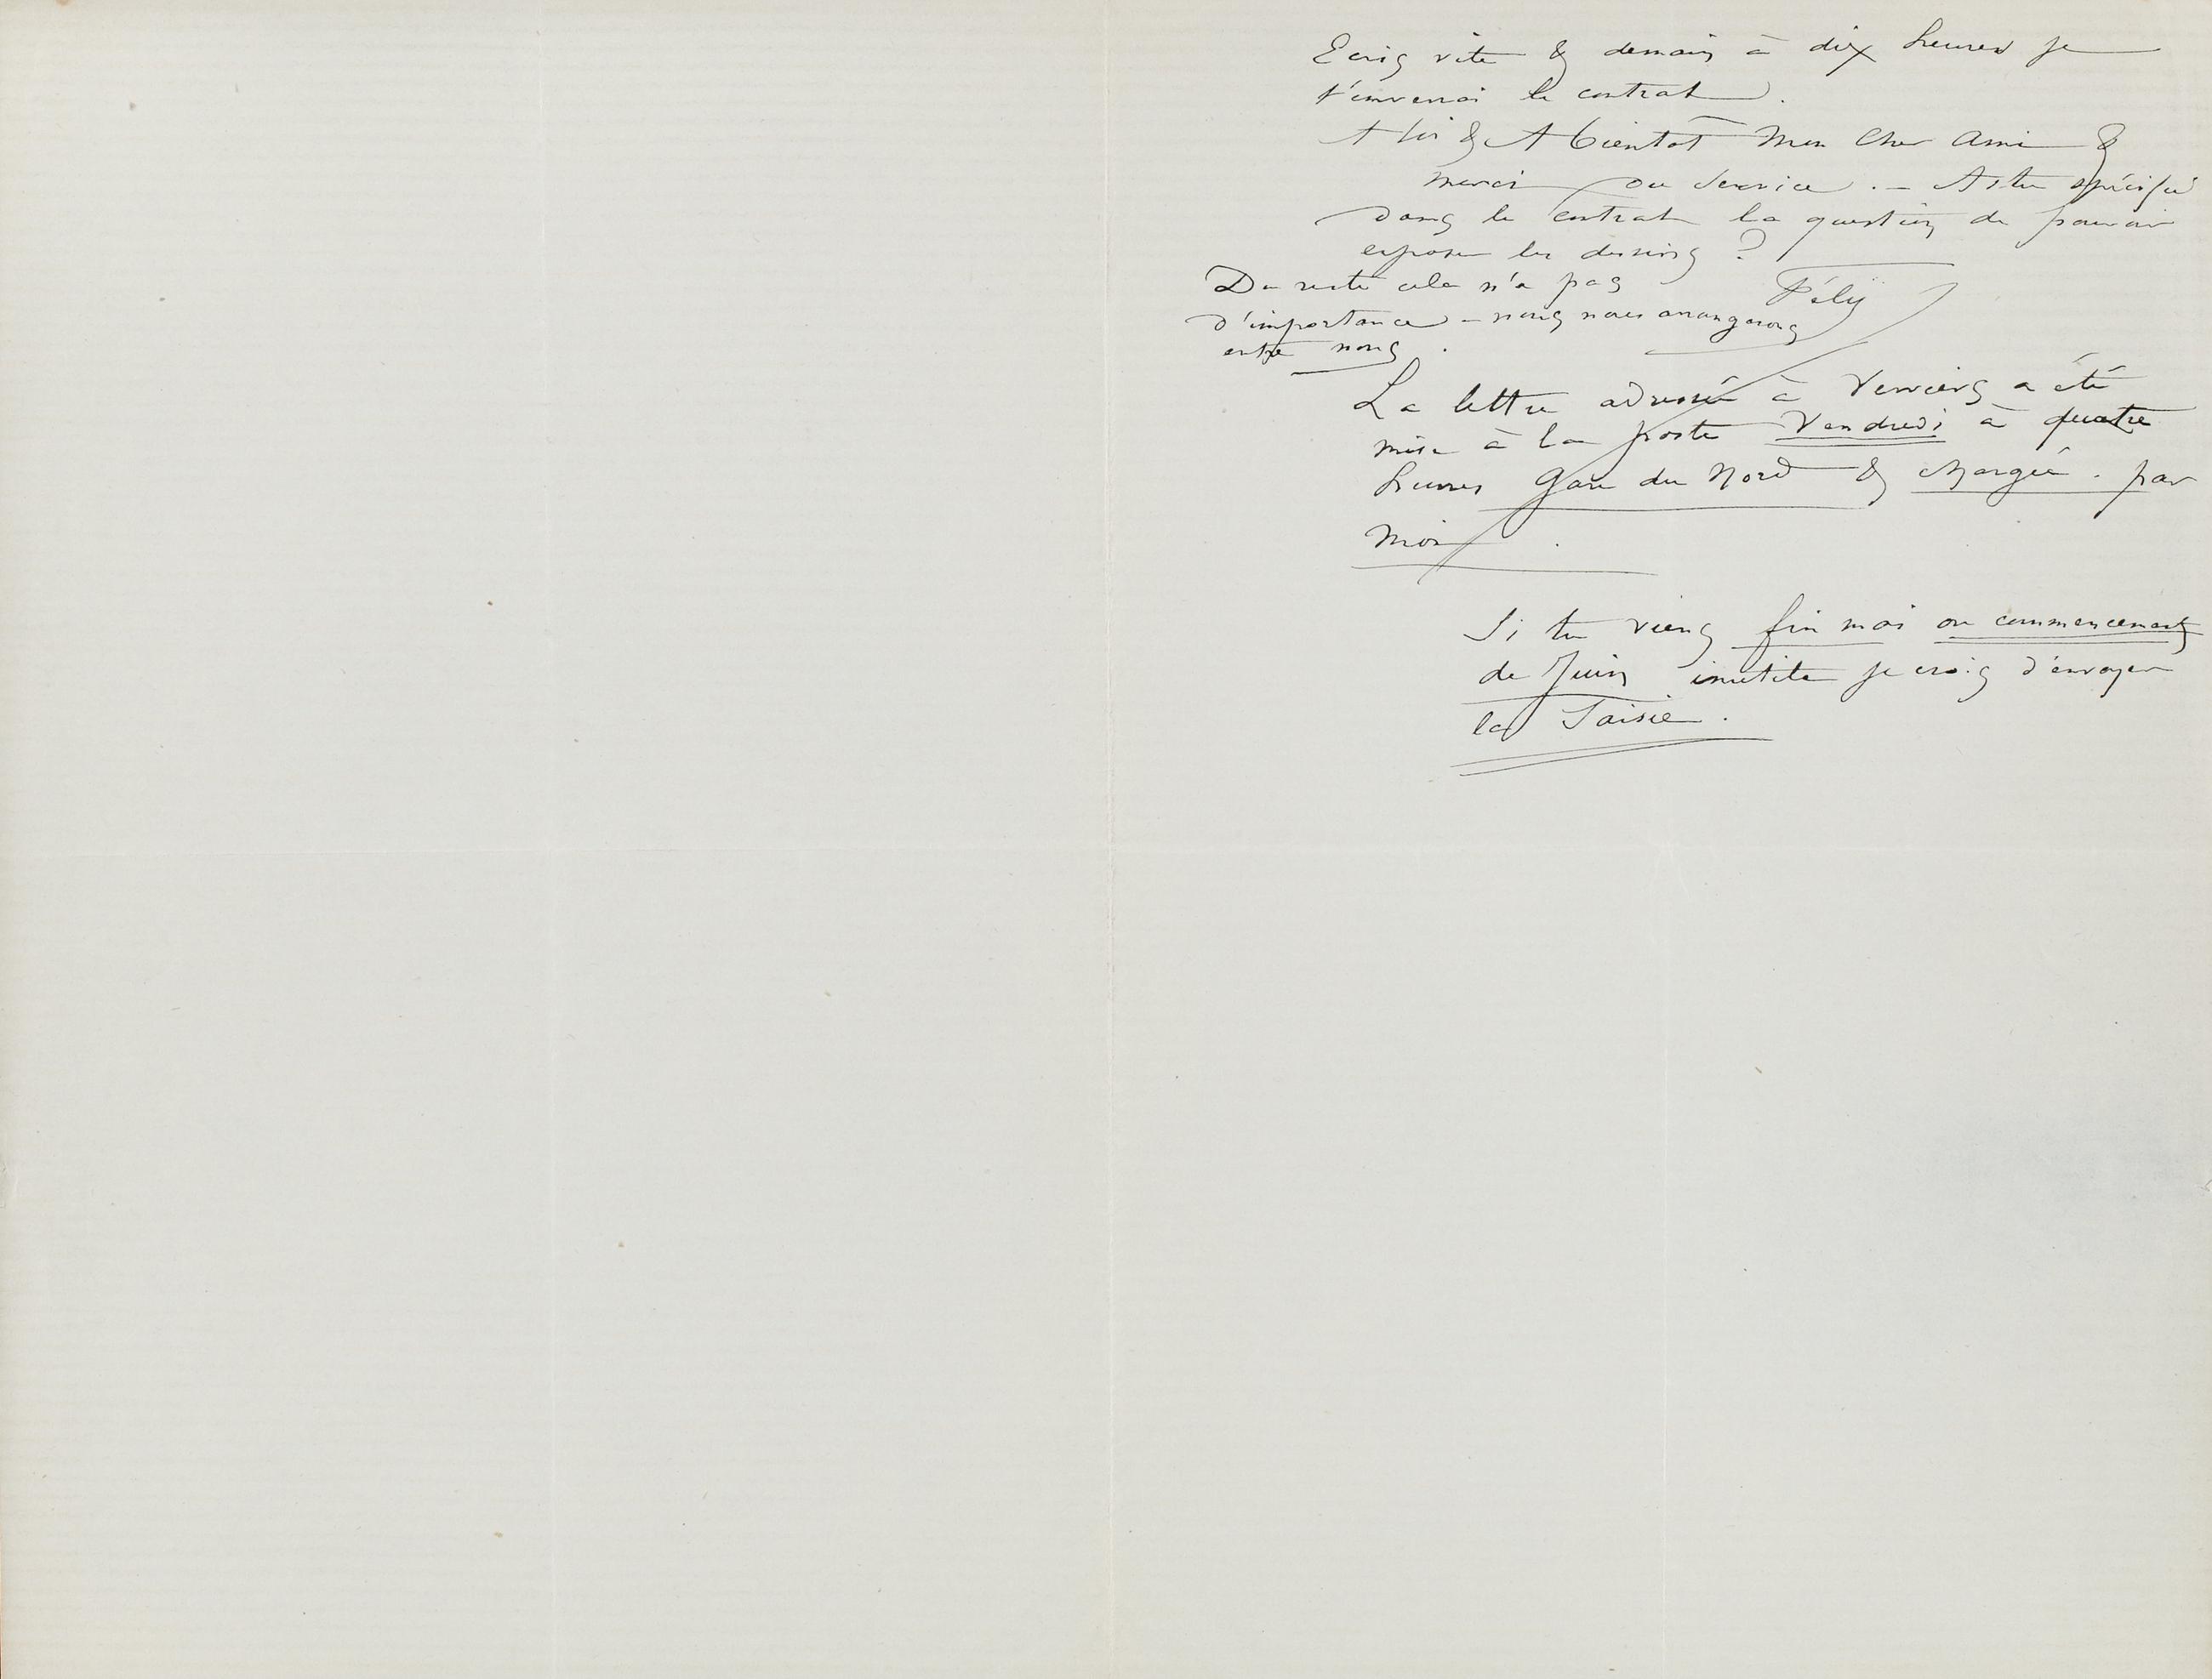 Ecris vite & demain à dix heures je
t'enverrai le contrat.
A toi & A bientôt Mon Cher Ami &
merci du service. – As tu spécifié
dans le contrat la question de pouvoir
exposer les dessins ?
Fély
Du reste cela n'a pas
d'importance – nous nous arrangerons
entre nous.
La lettre adressée à Verviers a été
mise à la poste Vendredi à quatre
heures Gare du Nord & chargée. par
moi.
Si tu viens fin mois ou commencement
de Juin inutile je crois d'envoyer
la Saisie.